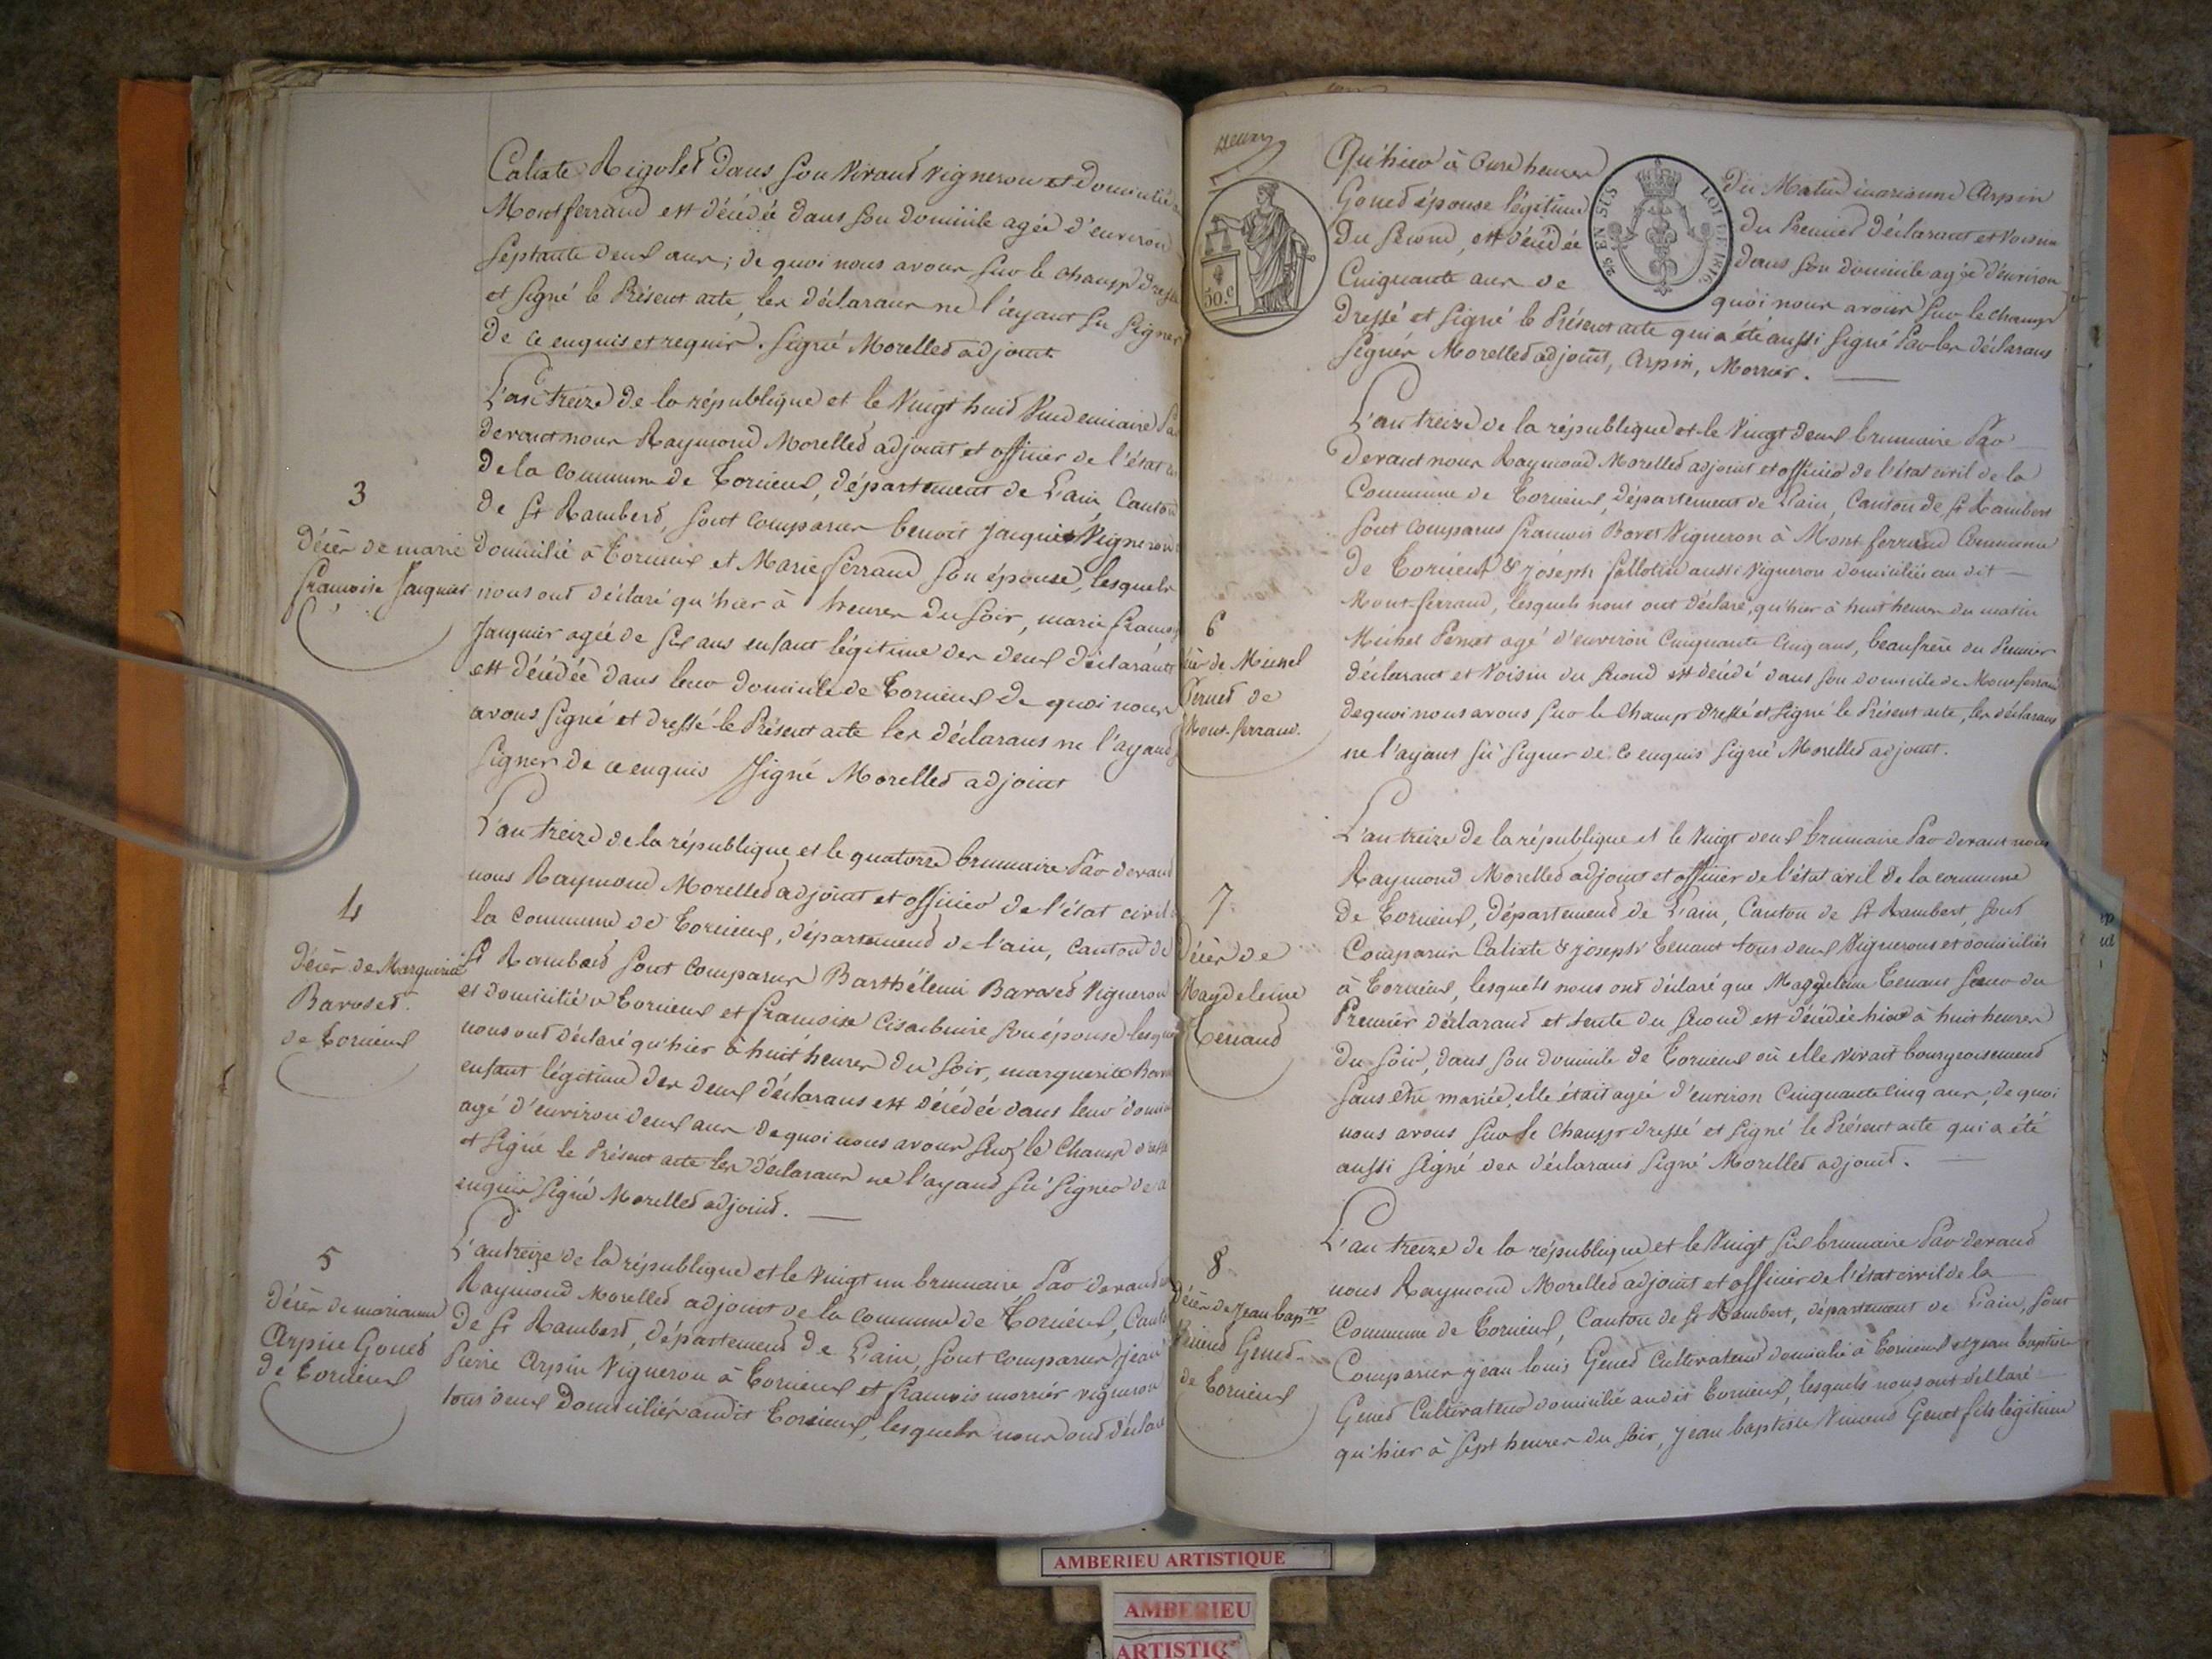 Calixte Rigolet dans son vivant vigneron et domicilié
Montferrand est décédé dans son domicile agée d'environ
septante deux ans; de quoi nous avons sur le champ
et signé le présent acte, les déclarans ne l'ayant su signer
de ce enquis et requis. signé Morellet adjoint
L'an treize de la république et le vingt huit vendemiaire
devant nous Raymond Morellet adjoint et officier de l'état
de la commune de Torcieux, département de L'ain, Canton
de St Rambert, sont comparus benoit Jacquier Vigneron
3
décès de marie
francoise Jacquier
domicilié à Torcieux et Marie ferrand son épouse, lesquels
nous ont déclaré qu'hier à heures du soir, marie
Jacquier agée de six ans enfant légitime des deux déclarants
est décédée dans leur domicile de Torcieux de quoi nous
avons signé et dressé le Présent acte les déclarans ne l'ayant
signer de ce enquis signé Morellet adjoint
L'an treize de la république et le quatorze brumaire Par devant
nous Raymond Morellet adjoint et officier de l'état civil
la commune de Torcieux, département de l'ain, canton de
4
décès de Marguerite
Baroset
de Torcieux
St Rambert sont comparus Barthélemi Baroset Vigneron
et domicilié a Torcieux et francoise son épouse
nous ont déclaré qu'hier à huit heures du soir, marguerite
enfant légitime des deux déclarans est décédée dans leur
agé d'environ deux ans de quoi nous avons sur le champ
et signé le Présent acte les déclarans ne l'ayant su signer de
enquis signé Morellet adjoint.
L'an treize de la république et le vingt un brumaire Par devant
5
décès de marianne
Arpin Gonet
de Torcieux
Raymond Morellet adjoint de la commune de Torcieux,
de St Rambert, département de L'ain, sont comparus jean
Pierre Arpin Vigneron à Torcieux et francois morrier vigneron
tous deux domiciliés audit Torcieux, lesquels nous ont
Qu'hier à onze heures du Matin marianne Arpin
Gonet épouse légitime du Premier déclarant et voisine
du second, est décédée dans son domicile agée d'environ
Cinquante ans de quoi nous avons sur le champ
50.c
25 EN SUS LOI DE 1816
dressé et signé le Présent acte qui a été aussi signé Par les déclarans
signés Morellet adjoint, Arpin, Morrier.
L'an treize de la république et le vingt deux brumaire Par
devant nous Raymond Morellet adjoint et officier de l'état civil de la
Commune de Torcieux, département de L'ain, Canton de St Rambert
sont comparus francois Bovet Vigneron à Mont ferrand Commune
de Torcieux & joseph aussi vigneron domicilié au dit
Mont-ferrand, lesquels nous ont déclaré, qu'hier à huit heures du matin
6
de Michel
Pernet de
Mont-ferrand.
Michel Pernet agé d'environ cinquante cinq ans, beaufrere du Premier
déclarant et voisin du second est décédé dans son domicile de Montferrand
de quoi nous avons sur le champ dressé et signé le Présent acte, les déclarans
ne l'ayant sù signer de ce enquis signé Morellet adjoint.
L'an treize de la république et le vingt deux brumaire Par devant nous
Raymond Morellet adjoint et officier de l'état civil de la commune
7
décès de
Magdeleine
Tenant
de Torcieux, département de L'ain, Canton de St Rambert, sont
Comparus Calixte & joseph Tenant tous deux Vignerons et domiciliés
à Torcieux, lesquels nous ont déclaré que Magdeleine Tenant soeur du
Premier déclarant et tente du second est décédée hier à huit heures
du soir, dans son domicile de Torcieux où elle vivait bourgeoisement
sans etre mariée, elle était agée d'environ cinquante cinq ans, de quoi
nous avons sur le champ dressé et signé le Présent acte qui a été
aussi signé des déclarans signé Morellet adjoint.
L'an treize de la république et le vingt six brumaire Par devant
nous Raymond Morellet adjoint et officier de l'état civil de la
8
décès de Jean bapte
Genet
de Torcieux
Commune de Torcieux, Canton de St Rambert, département de L'ain, sont
Comparus jean louis Genet Cultivateur domicilié à Torcieux et jean baptiste
Genet Cultivateur domicilié audit Torcieux, lesquels nous ont déclaré
qu'hier à sept heures du soir, jean baptiste Vincent Genet fils légitime
AMBERIEU ARTISTIQUE
AMBERIEU
ARTISTIQ